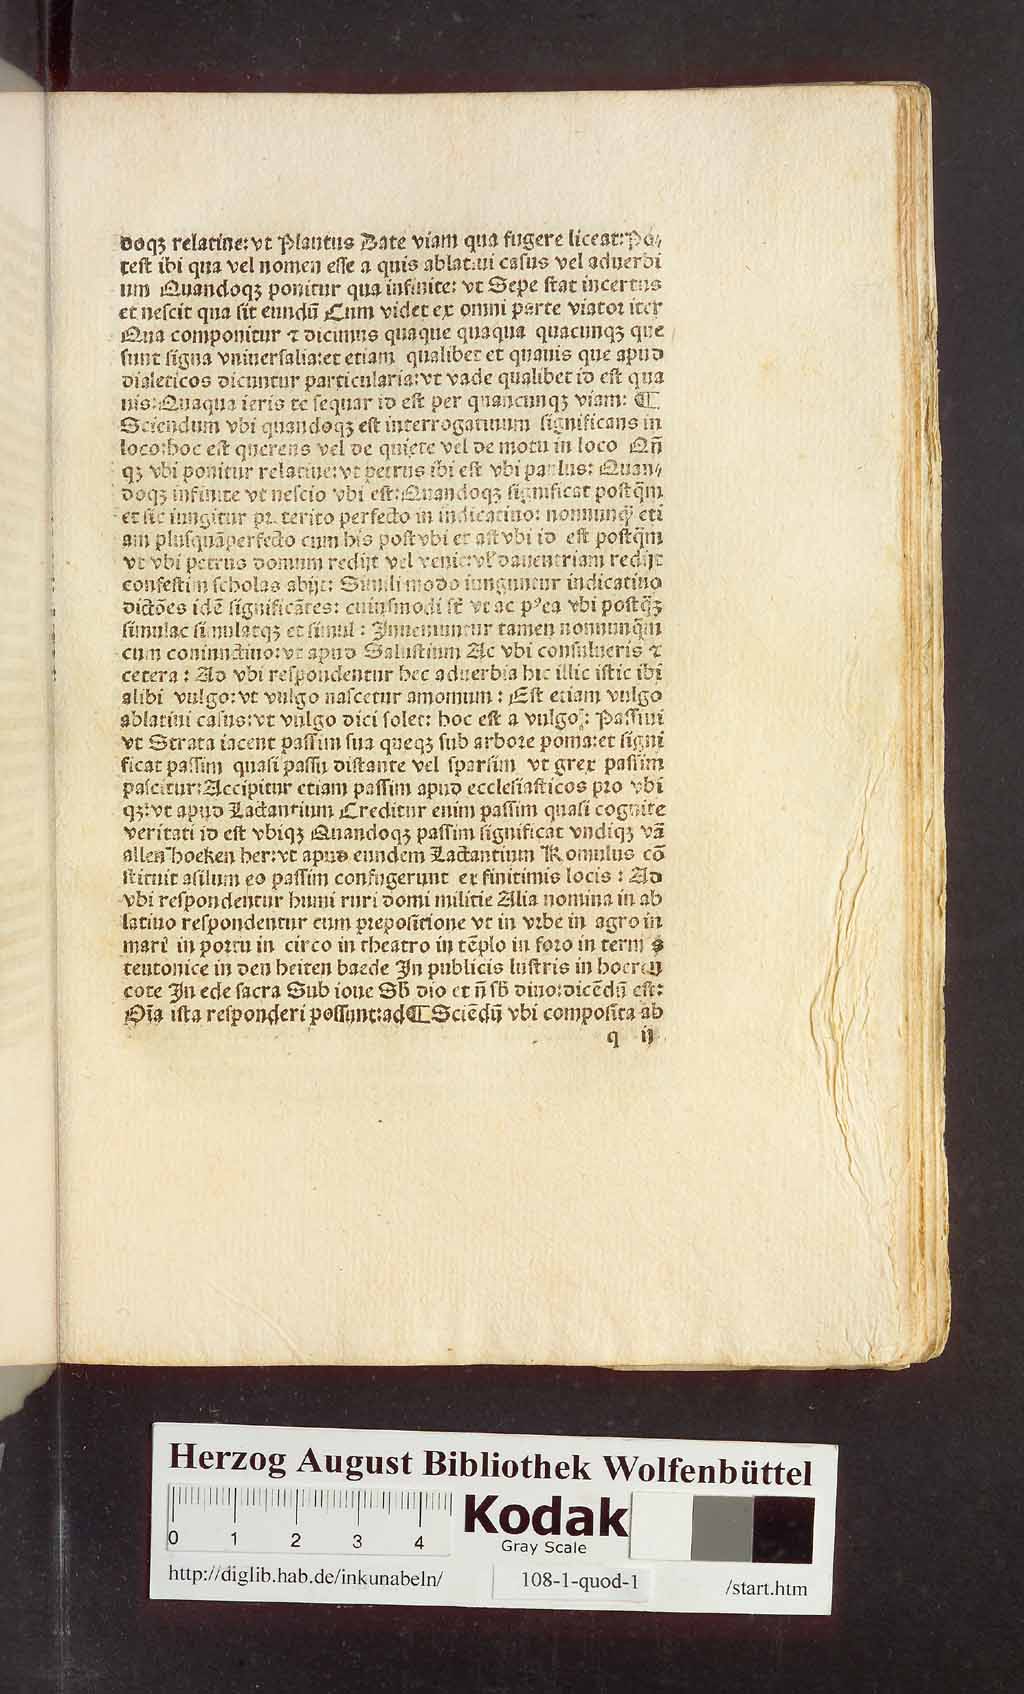 doqꝫ relatiue: vt Plautus Date viam qua fugere liceat: Po⸗
test ibi qua vel nomen esse a quis ablatiui casus vel aduerbi
um Quandoqꝫ ponitur qua infinite: vt Sepe stat incertus
et nescit qua sit eundū Cum videt ex omni parte viator iter
Qua componitur ⁊ dicimus quaque quaqua quacunqꝫ que
sunt signa vniuersalia: et etiam qualibet et quauis que apud
dialeticos dicuntur particularia: vt vade qualibet id est qua
uis: Quaqua ieris te sequar id est per quancunqꝫ viam: ¶
Sciendum vbi quandoqꝫ est interrogatiuum significans in
loco: hoc est querens vel de quiete vel de motu in loco Qn̄
qꝫ vbi ponitur relatiue: vt petrus ibi est vbi paulus: Quan⸗
doqꝫ infinite vt nescio vbi est: Quandoqꝫ significat postq̄m
et sic iungitur preterito perfecto in indicatiuo: nonnunq̄ eti
am plusquāperfecto cum his postvbi et astvbi id est postq̄m
vt vbi petrus domum redijt vel venit: vl' dauentriam redijt
confestim scholas abijt: Simili modo iunguntur indicatiuo
dictōes idē significātes: cuiusmodi st̄ vt ac p̉ea vbi postq̄ꝫ
simulac simulatqꝫ et simul: Inueniuntur tamen nonnunq̄m
cum coniunctiuo: vt apud Salustium Ac vbi consulueris ⁊
cetera: Ad vbi respondentur hec aduerbia hic illic istic ibi
alibi vulgo: vt vulgo nascetur amomum: Est etiam vulgo
ablatiui casus: vt vulgo dici solet: hoc est a vulgo: Passim
vt Strata iacent passim sua queqꝫ sub arbore poma: et signi
ficat passim quasi passu distante vel sparsim vt grex passim
pascitur: Accipitur etiam passim apud ecclesiasticos pro vbi
qꝫ: vt apud Lactantium Creditur enim passim quasi cognite
veritati id est vbiqꝫ Quandoqꝫ passim significat vndiqꝫ vā
allen hoeken her: vt apud eundem Lactantium Romulus cō
stituit asilum eo passim confugerunt ex finitimis locis: Ad
vbi respondentur humi ruri domi militie Alia nomina in ab
latiuo respondentur cum prepositione vt in vrbe in agro in
mari in portu in circo in theatro in tēplo in foro in term s
teutonice in den heiten baede In publicis lustris in hoeren
cote In ede sacra Sub ioue Sb̄ dio et n̄ sb̄ diuo: dicēdū est:
Oīa ista responderi possunt: ad ¶ Sciēdū vbi composita ab
q ij
Herzog August Bibliothek Wolfenbüttel
0 1 2 3 4
Kodak
Gray Scale
http://diglib.hab.de/inkunabeln/ 108-1-quod-1 /start.htm